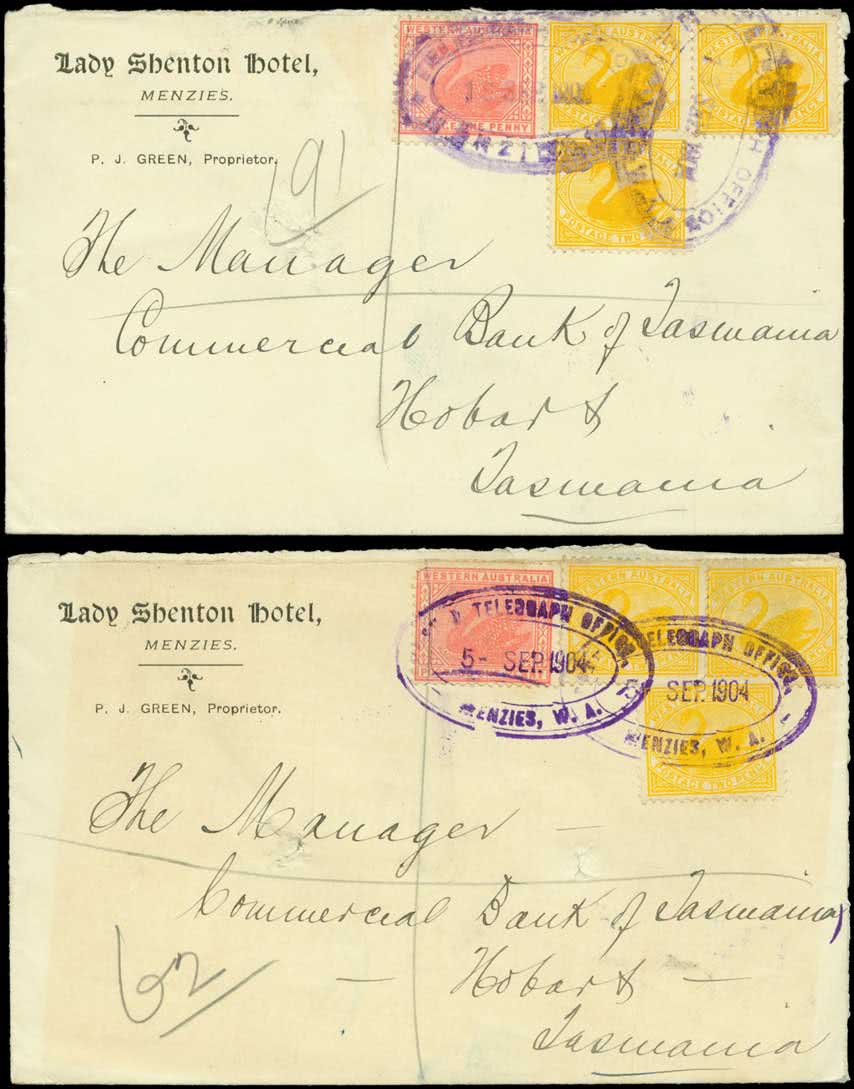 Lady Shenton Hotel,
MENZIES.
P. J. GREEN, Proprietor.
91
WESTERN AUSTRALIA
POSTAGE ONE PENNY
WESTERN AUSTRALIA
POSTAGE TWO PENCE
MENZIES
OFFICE
The Manager
Commercial Bank of Tasmania
Hobart
Tasmania
Lady Shenton Hotel,
MENZIES.
P. J. GREEN, Proprietor.
WESTERN AUSTRALIA
WESTERN AUSTRALIA
WESTERN AUSTRALIA
POSTAGE TWO PENCE
TELEGRAPH OFFICE,
5- SEP. 1904
MENZIES, W. A.
TELEGRAPH OFFICE,
5- SEP. 1904
MENZIES, W. A.
The Manager –
Commercial Bank of Tasmania
– Hobart –
Tasmania
92